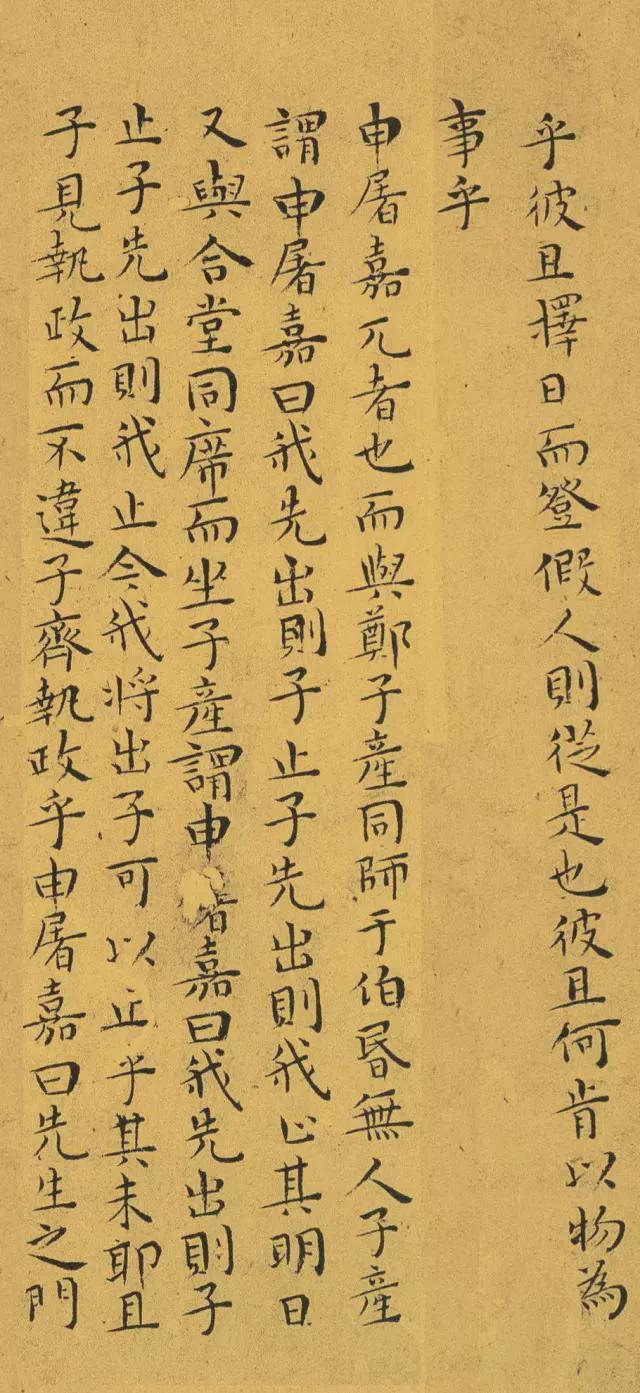 乎彼且擇日而登假人則從是也彼且何肯以物為
事乎
申屠嘉兀者也而與鄭子產同師于伯昬無人子產
謂申屠嘉曰我先出則子止子先出則我止其明日
又與合堂同席而坐子產謂申屠嘉曰我先出則子
止子先出則我止今我將出子可以止乎其未耶且
子見執政而不違子齊執政乎申屠嘉曰先生之門